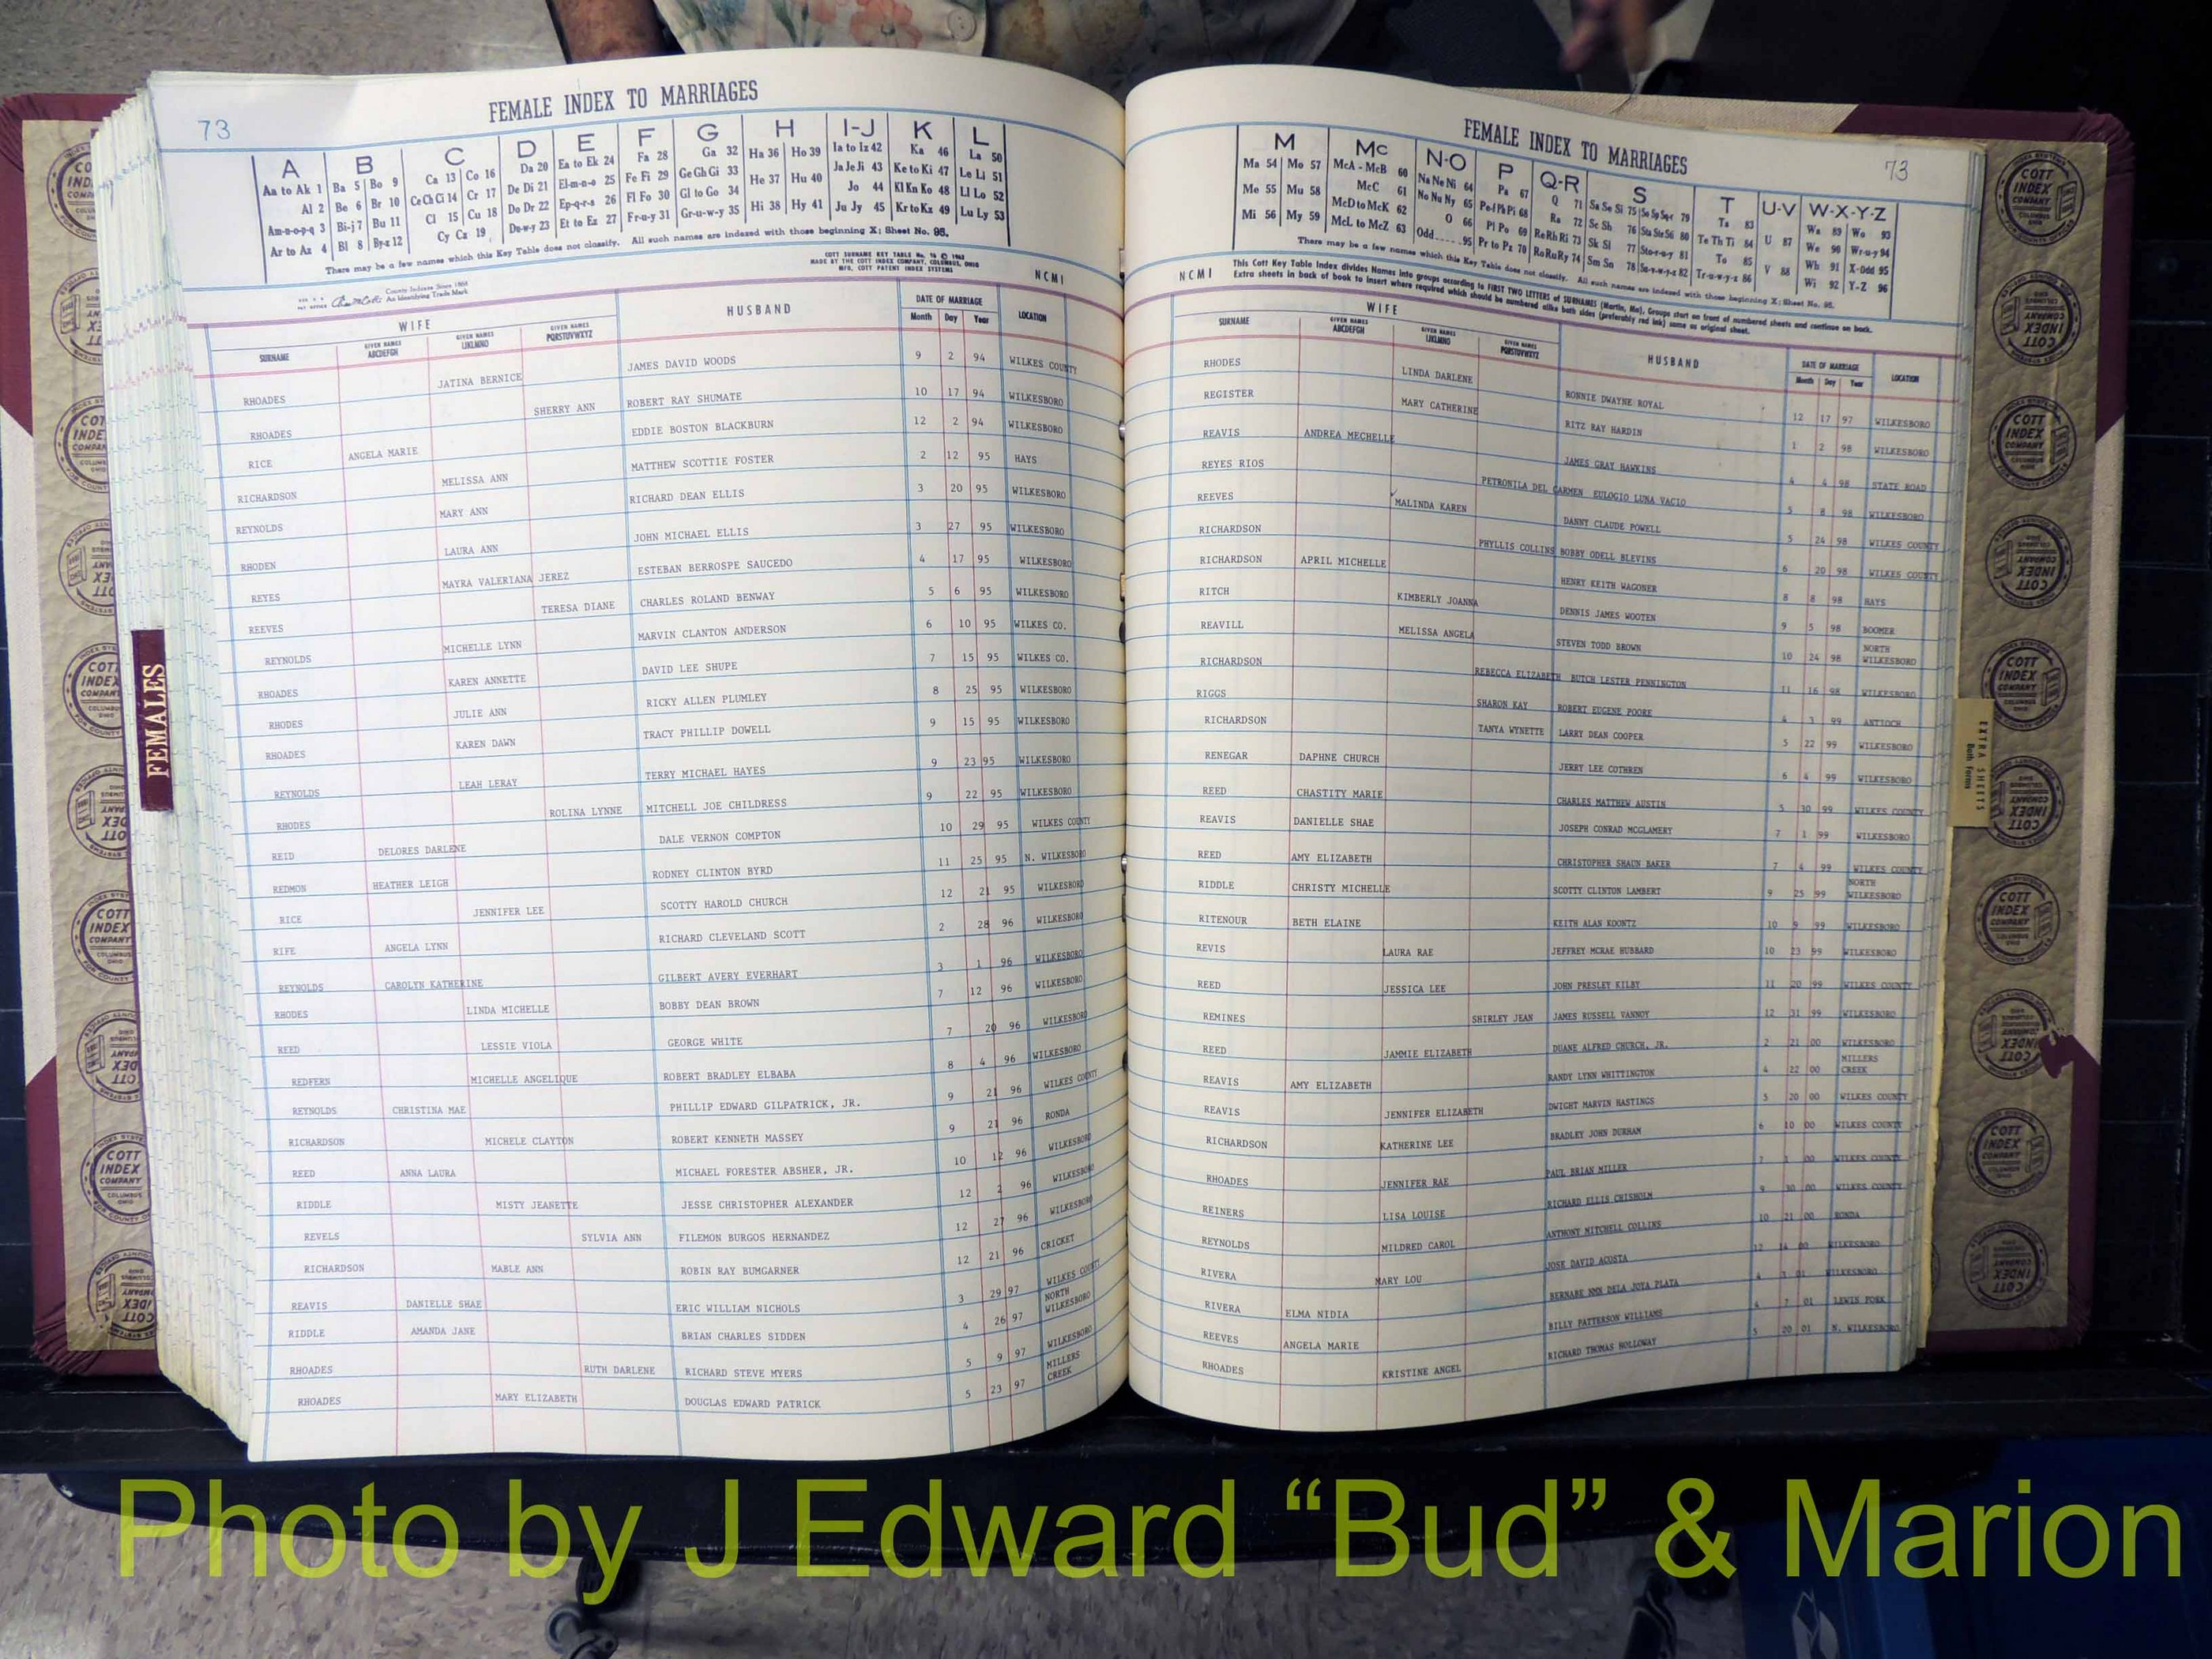 FEMALE INDEX TO MARRIAGES
73
A B C D E F G H I-J K L
Aa to Ak 1 Ba 5 Bo 9 Ca 13 Co 16 Da 20 Ea to Ek 24 Fa 28 Ga 32 Ha 36 Ho 39 Ia to Iz 42 Ka 46 La 50
Al 2 Be 6 Br 10 Ce Ch Ci 14 Cr 17 De Di 21 El-m-n-o 25 Fe Fi 29 Ge Gh Gi 33 He 37 Hu 40 Ja Je Ji 43 Ke to Ki 47 Le Li 51
Am-n-o-p-q 3 Bi-j 7 Bu 11 Cl 15 Cu 18 Do Dr 22 Ep-q-r-s 26 Fl Fo 30 Gl to Go 34 Hi 38 Hy 41 Jo 44 Kl Kn Ko 48 Ll Lo 52
Ar to Az 4 Bl 8 By-z 12 Cy Cz 19 Du-w-y 23 Et to Ez 27 Fr-u-y 31 Gr-u-w-y 35 Ju Jy 45 Kr to Kz 49 Lu Ly 53
There may be a few names which this Key Table does not classify. All such names are indexed with those beginning X; Sheet No. 95.
COTT SURNAME KEY TABLE
MADE BY THE COTT INDEX COMPANY, COLUMBUS, OHIO
MFG. COTT PATENT INDEX SYSTEMS
NCMI
County Indexes Since 1888
An Identifying Trade Mark
WIFE HUSBAND DATE OF MARRIAGE LOCATION
SURNAME GIVEN NAMES ABCDEFGH GIVEN NAMES IJKLMNO GIVEN NAMES PQRSTUVWXYZ Month Day Year
RHOADES JATINA BERNICE JAMES DAVID WOODS 9 2 94 WILKES COUNTY
RHOADES SHERRY ANN ROBERT RAY SHUMATE 10 17 94 WILKESBORO
RICE ANGELA MARIE EDDIE BOSTON BLACKBURN 12 2 94 WILKESBORO
RICHARDSON MELISSA ANN MATTHEW SCOTTIE FOSTER 2 12 95 HAYS
REYNOLDS MARY ANN RICHARD DEAN ELLIS 3 20 95 WILKESBORO
RHODEN LAURA ANN JOHN MICHAEL ELLIS 3 27 95 WILKESBORO
REYES MAYRA VALERIANA JEREZ ESTEBAN BERROSPE SAUCEDO 4 17 95 WILKESBORO
REEVES TERESA DIANE CHARLES ROLAND BENWAY 5 6 95 WILKESBORO
REYNOLDS MICHELLE LYNN MARVIN CLANTON ANDERSON 6 10 95 WILKES CO.
RHOADES KAREN ANNETTE DAVID LEE SHUPE 7 15 95 WILKES CO.
RHODES JULIE ANN RICKY ALLEN PLUMLEY 8 25 95 WILKESBORO
RHOADES KAREN DAWN TRACY PHILLIP DOWELL 9 15 95 WILKESBORO
REYNOLDS LEAH LERAY TERRY MICHAEL HAYES 9 23 95 WILKESBORO
RHODES ROLINA LYNNE MITCHELL JOE CHILDRESS 9 22 95 WILKESBORO
REID DELORES DARLENE DALE VERNON COMPTON 10 29 95 WILKES COUNTY
REDMON HEATHER LEIGH RODNEY CLINTON BYRD 11 25 95 N. WILKESBORO
RICE JENNIFER LEE SCOTTY HAROLD CHURCH 12 21 95 WILKESBORO
RIFE ANGELA LYNN RICHARD CLEVELAND SCOTT 2 28 96 WILKESBORO
REYNOLDS CAROLYN KATHERINE GILBERT AVERY EVERHART 3 1 96 WILKESBORO
RHODES LINDA MICHELLE BOBBY DEAN BROWN 7 12 96 WILKESBORO
REED LESSIE VIOLA GEORGE WHITE 7 20 96 WILKESBORO
REDFERN MICHELLE ANGELIQUE ROBERT BRADLEY ELBABA 8 4 96 WILKESBORO
REYNOLDS CHRISTINA MAE PHILLIP EDWARD GILPATRICK, JR. 9 21 96 WILKES COUNTY
RICHARDSON MICHELE CLAYTON ROBERT KENNETH MASSEY 9 21 96 RONDA
REED ANNA LAURA MICHAEL FORESTER ABSHER, JR. 10 12 96 WILKESBORO
RIDDLE MISTY JEANETTE JESSE CHRISTOPHER ALEXANDER 12 2 96 WILKESBORO
REVELS SYLVIA ANN FILEMON BURGOS HERNANDEZ 12 27 96 WILKESBORO
RICHARDSON MABLE ANN ROBIN RAY BUMGARNER 12 21 96 CRICKET
REAVIS DANIELLE SHAE ERIC WILLIAM NICHOLS 3 29 97 WILKES COUNTY
RIDDLE AMANDA JANE BRIAN CHARLES SIDDEN 4 26 97 NORTH WILKESBORO
RHOADES RUTH DARLENE RICHARD STEVE MYERS 5 9 97 WILKESBORO
RHOADES MARY ELIZABETH DOUGLAS EDWARD PATRICK 5 23 97 MILLERS CREEK
FEMALES
FEMALE INDEX TO MARRIAGES
73
M Mc N-O P Q-R S T U-V W-X-Y-Z
Ma 54 Mo 57 McA - McB 60 Na Ne Ni 64 Pa 67 Q 71 Sa Se Si 75 So Sp Sq-r 79 Ta 83 U 87 Wa 89 Wo 93
Me 55 Mu 58 McC 61 No Nu Ny 65 Pe-f Ph Pi 68 Ra 72 Sc Sh 76 Sta Ste St6 80 Te Th Ti 84 V 88 We 90 Wr-u-y 94
Mi 56 My 59 McD to McK 62 O 66 Pl Po 69 Re Rh Ri 73 Sk Sl 77 Sto-r-u-y 81 To 85 Wh 91 X-Odd 95
McL to McZ 63 Odd 95 Pr to Pz 70 Ro Ru Ry 74 Sm Sn 78 Su-v-w-y-z 82 Tr-u-w-y-z 86 Wi 92 Y-Z 96
There may be a few names which this Key Table does not classify. All such names are indexed with those beginning X; Sheet No. 95.
NCMI
This Cott Key Table Index divides Names into groups according to FIRST TWO LETTERS of SURNAMES (Martin, Ma), Groups start on front of numbered sheets and continue on back.
Extra sheets in back of book to insert where required which should be numbered alike both sides (preferably red ink) same as original sheet.
WIFE HUSBAND DATE OF MARRIAGE LOCATION
SURNAME GIVEN NAMES ABCDEFGH GIVEN NAMES IJKLMNO GIVEN NAMES PQRSTUVWXYZ Month Day Year
RHODES LINDA DARLENE RONNIE DWAYNE ROYAL 12 17 97 WILKESBORO
REGISTER MARY CATHERINE RITZ RAY HARDIN 1 2 98 WILKESBORO
REAVIS ANDREA MECHELLE JAMES GRAY HAWKINS 4 4 98 STATE ROAD
REYES RIOS PETRONILA DEL CARMEN EULOGIO LUNA VACIO 5 8 98 WILKESBORO
REEVES MALINDA KAREN DANNY CLAUDE POWELL 5 24 98 WILKES COUNTY
RICHARDSON PHYLLIS COLLINS BOBBY ODELL BLEVINS 6 20 98 WILKES COUNTY
RICHARDSON APRIL MICHELLE HENRY KEITH WAGONER 8 8 98 HAYS
RITCH KIMBERLY JOANNA DENNIS JAMES WOOTEN 9 5 98 BOOMER
REAVILL MELISSA ANGELA STEVEN TODD BROWN 10 24 98 NORTH WILKESBORO
RICHARDSON REBECCA ELIZABETH BUTCH LESTER PENNINGTON 11 16 98 WILKESBORO
RIGGS SHARON KAY ROBERT EUGENE POORE 4 3 99 ANTIOCH
RICHARDSON TANYA WYNETTE LARRY DEAN COOPER 5 22 99 WILKESBORO
RENEGAR DAPHNE CHURCH JERRY LEE COTHREN 6 4 99 WILKESBORO
REED CHASTITY MARIE CHARLES MATTHEW AUSTIN 5 30 99 WILKES COUNTY
REAVIS DANIELLE SHAE JOSEPH CONRAD MCGLAMERY 7 1 99 WILKESBORO
REED AMY ELIZABETH CHRISTOPHER SHAUN BAKER 7 4 99 WILKES COUNTY
RIDDLE CHRISTY MICHELLE SCOTTY CLINTON LAMBERT 9 25 99 NORTH WILKESBORO
RITENOUR BETH ELAINE KEITH ALAN KOONTZ 10 9 99 WILKESBORO
REVIS LAURA RAE JEFFREY MCRAE HUBBARD 10 23 99 WILKESBORO
REED JESSICA LEE JOHN PRESLEY KILBY 11 20 99 WILKES COUNTY
REMINES SHIRLEY JEAN JAMES RUSSELL VANNOY 12 31 99 WILKESBORO
REED JAMMIE ELIZABETH DUANE ALFRED CHURCH, JR. 2 21 00 WILKESBORO
REAVIS AMY ELIZABETH RANDY LYNN WHITTINGTON 4 22 00 MILLERS CREEK
REAVIS JENNIFER ELIZABETH DWIGHT MARVIN HASTINGS 5 20 00 WILKES COUNTY
RICHARDSON KATHERINE LEE BRADLEY JOHN DURHAM 6 10 00 WILKES COUNTY
RHOADES JENNIFER RAE PAUL BRIAN MILLER 7 1 00 WILKES COUNTY
REINERS LISA LOUISE RICHARD ELLIS CHISHOLM 9 30 00 WILKES COUNTY
REYNOLDS MILDRED CAROL ANTHONY MITCHELL COLLINS 10 21 00 RONDA
RIVERA MARY LOU JOSE DAVID ACOSTA 12 14 00 WILKESBORO
RIVERA ELMA NIDIA BERNABE NMN DELA JOYA PLATA 4 3 01 WILKESBORO
REEVES ANGELA MARIE BILLY PATTERSON WILLIAMS 4 7 01 LEWIS FORK
RHOADES KRISTINE ANGEL RICHARD THOMAS HOLLOWAY 5 20 01 N. WILKESBORO
EXTRA SHEETS
Both Forms
COTT INDEX COMPANY
COLUMBUS OHIO
Photo by J Edward “Bud” & Marion